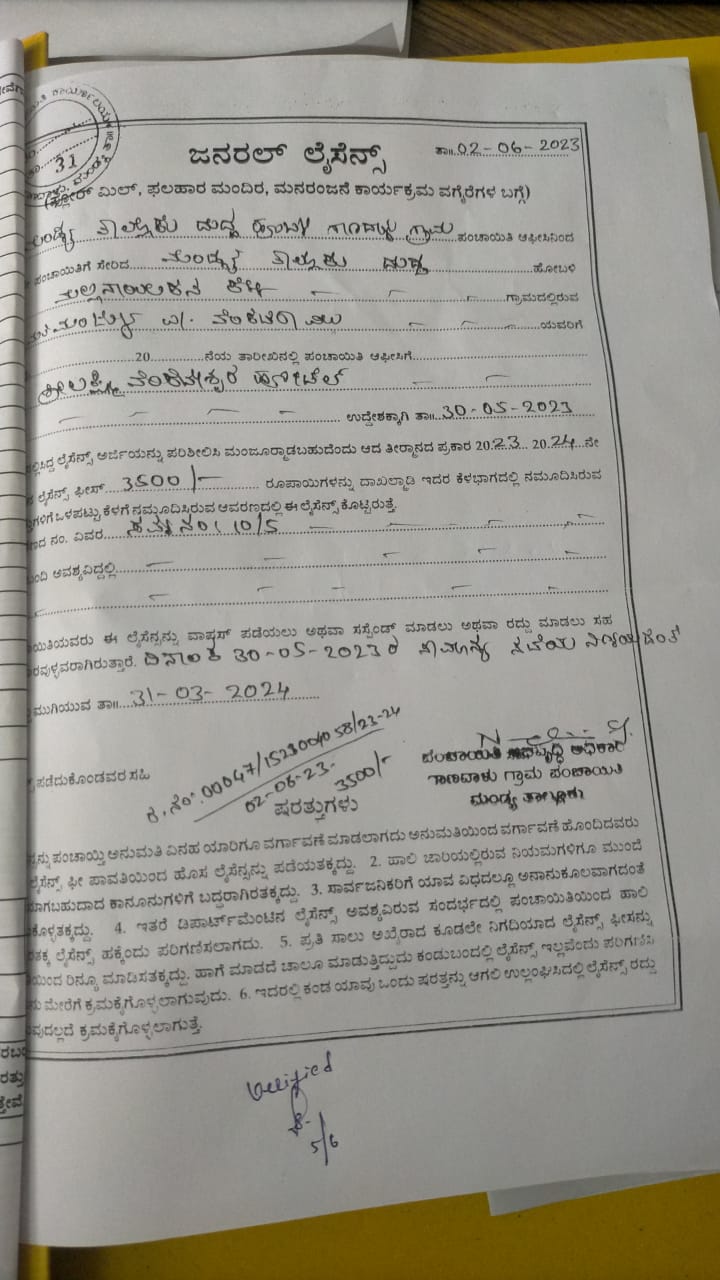 31
ಜನರಲ್ ಲೈಸೆನ್ಸ್ ತಾ॥ 02-06-2023
(ಫ್ಲೋರ್ ಮಿಲ್, ಫಲಹಾರ ಮಂದಿರ, ಮನರಂಜನೆ ಕಾರ್ಯಕ್ರಮ ವಗೈರೆಗಳ ಬಗ್ಗೆ)
ಮಂಡ್ಯ ತಾಲ್ಲೂಕು ದುದ್ದ ಹೋಬಳಿ ಗಾಣದಾಳು ಗ್ರಾಮ ಪಂಚಾಯಿತಿ ಆಫೀಸಿನಿಂದ
ಪಂಚಾಯಿತಿಗೆ ಸೇರಿದ ಮಂಡ್ಯ ತಾಲ್ಲೂಕು ದುದ್ದ ಹೋಬಳಿ
ಮಲ್ಲನಾಯಕನ ಕಟ್ಟೆ ಗ್ರಾಮದಲ್ಲಿರುವ
ಯವರಿಗೆ
20 ನೆಯ ತಾರೀಖಿನಲ್ಲಿ ಪಂಚಾಯಿತಿ ಆಫೀಸಿಗೆ
ಶ್ರೀ ಲಕ್ಷ್ಮಿ ವೆಂಕಟೇಶ್ವರ ಹೋಟೆಲ್
ಉದ್ದೇಶಕ್ಕಾಗಿ ತಾ॥ 30-05-2023
ಲೈಸೆನ್ಸ್ ಅರ್ಜಿಯನ್ನು ಪರಿಶೀಲಿಸಿ ಮಂಜೂರ್ಮಾಡಬಹುದೆಂದು ಆದ ತೀರ್ಮಾನದ ಪ್ರಕಾರ 2023 2024ನೇ
ಲೈಸೆನ್ಸ್ ಫೀಸ್ 3500/- ರೂಪಾಯಿಗಳನ್ನು ದಾಖಲ್ಮಾಡಿ ಇದರ ಕೆಳಭಾಗದಲ್ಲಿ ನಮೂದಿಸಿರುವ
ಒಳಪಟ್ಟು ಕೆಳಗೆ ನಮೂದಿಸಿರುವ ಆವರಣದಲ್ಲಿ ಈ ಲೈಸೆನ್ಸ್ ಕೊಟ್ಟಿರುತ್ತೆ.
ನಂ. ವಿವರ ಸರ್ವೆ ನಂ: 10/5
ಅವಶ್ಯವಿದ್ದಲ್ಲಿ
ಈ ಲೈಸೆನ್ಸನ್ನು ವಾಪಸ್ ಪಡೆಯಲು ಅಥವಾ ಸಸ್ಪೆಂಡ್ ಮಾಡಲು ಅಥವಾ ರದ್ದು ಮಾಡಲು ಸಹ
ದಿನಾಂಕ 30-05-2023ರ ಸಾಮಾನ್ಯ ಸಭೆಯ ನಿರ್ಣಯದಂತೆ
ಮುಗಿಯುವ ತಾ॥ 31-03-2024
ಪಡೆದುಕೊಂಡವರ ಸಹಿ
ರ.ನಂ: 00047/1523004058/23-24
02-06-23. 3500/-
ಪಂಚಾಯಿತಿ ಅಭಿವೃದ್ಧಿ ಅಧಿಕಾರಿ
ಗಾಣದಾಳು ಗ್ರಾಮ ಪಂಚಾಯಿತಿ
ಮಂಡ್ಯ ತಾಲ್ಲೂಕು
ಷರತ್ತುಗಳು
ಪಂಚಾಯ್ತಿ ಅನುಮತಿ ವಿನಹ ಯಾರಿಗೂ ವರ್ಗಾವಣೆ ಮಾಡಲಾಗದು ಅನುಮತಿಯಿಂದ ವರ್ಗಾವಣೆ ಹೊಂದಿದವರು
ಲೈಸೆನ್ಸ್ ಫೀ ಪಾವತಿಯಿಂದ ಹೊಸ ಲೈಸೆನ್ಸನ್ನು ಪಡೆಯತಕ್ಕದ್ದು. 2. ಹಾಲಿ ಜಾರಿಯಲ್ಲಿರುವ ನಿಯಮಗಳಿಗೂ ಮುಂದೆ
ಕಾನೂನುಗಳಿಗೆ ಬದ್ದರಾಗಿರತಕ್ಕದ್ದು. 3. ಸಾರ್ವಜನಿಕರಿಗೆ ಯಾವ ವಿಧದಲ್ಲೂ ಅನಾನುಕೂಲವಾಗದಂತೆ
4. ಇತರೆ ಡಿಪಾರ್ಟ್‌ಮೆಂಟಿನ ಲೈಸೆನ್ಸ್ ಅವಶ್ಯವಿರುವ ಸಂದರ್ಭದಲ್ಲಿ ಪಂಚಾಯಿತಿಯಿಂದ ಹಾಲಿ
ಲೈಸೆನ್ಸ್ ಹಕ್ಕೆಂದು ಪರಿಗಣಿಸಲಾಗದು. 5. ಪ್ರತಿ ಸಾಲು ಅಖೈರಾದ ಕೂಡಲೇ ನಿಗದಿಯಾದ ಲೈಸೆನ್ಸ್ ಫೀಸನ್ನು
ರಿನ್ಯೂ ಮಾಡಿಸತಕ್ಕದ್ದು. ಹಾಗೆ ಮಾಡದೆ ಚಾಲೂ ಮಾಡುತ್ತಿದ್ದುದು ಕಂಡುಬಂದಲ್ಲಿ ಲೈಸೆನ್ಸ್ ಇಲ್ಲವೆಂದು ಪರಿಗಣಿಸಿ
ಮೇರೆಗೆ ಕ್ರಮಕೈಗೊಳ್ಳಲಾಗುವುದು. 6. ಇದರಲ್ಲಿ ಕಂಡ ಯಾವು ಒಂದು ಷರತ್ತನ್ನು ಆಗಲಿ ಉಲ್ಲಂಘಿಸಿದಲ್ಲಿ ಲೈಸೆನ್ಸ್ ರದ್ದು
ಕ್ರಮಕೈಗೊಳ್ಳಲಾಗುತ್ತೆ.
Verified
5/6